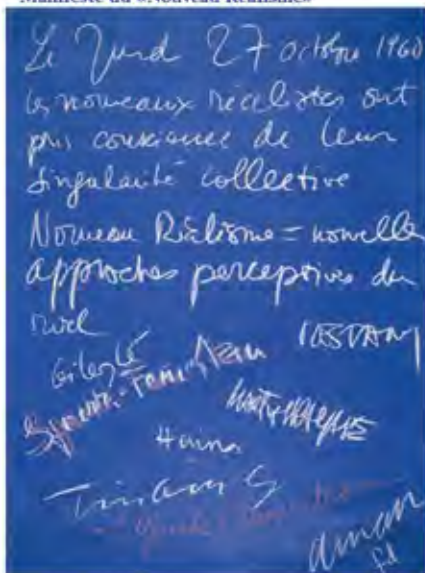 Manifeste du «Nouveau Réalisme»
Le Jeudi 27 octobre 1960
les nouveaux réalistes ont
pris conscience de leur
singularité collective
Nouveau Réalisme = nouvelles
approches perceptives du
réel
RESTANY
Hains
Tinguely
Arman